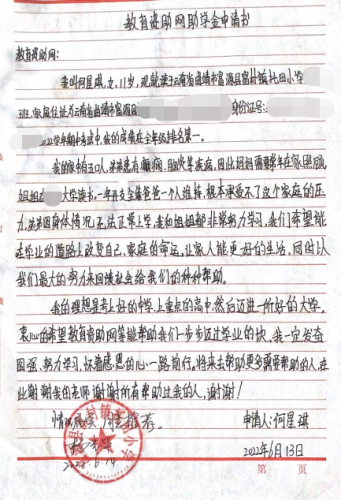 教育资助网助学金申请书
教育资助网:
我叫何星琪,女,11岁,现就读于云南省曲靖市富源县富村镇托田小学
班,家庭住址为云南省曲靖市富源 身份证号:
2022学年期中考试中,我的成绩在全年级排名第一。
我的家中有五口人,弟弟患有癫痫、脑次等疾病,因此妈妈需要常年在家照顾,
姐姐在 大学读书。一年开支全靠爸爸一个人维持,根本承受不了这个家庭的压
力,弟弟因身体情况无法正常上学,我和姐姐都非常努力学习,我们希望能
在学业的道路上改变自己、家庭的命运,让家人能更好的生活,同时以
我们最大的努力来回馈社会给我们的种种帮助。
我的理想是考上好的中学,上重点的高中,然后迈进一所好的大学。
衷心的希望教育资助网等能帮助我们一步步迈过学业的坎,我一定发奋
图强、努力学习,怀着感恩的心一路前行。将来去帮助更多需要帮助的人,在
此谢谢我的老师,谢谢所有帮助过我的人,谢谢!
情况属实,同意推荐。 申请人:何星琪
2022.6.14 2022年6月13日
第 页